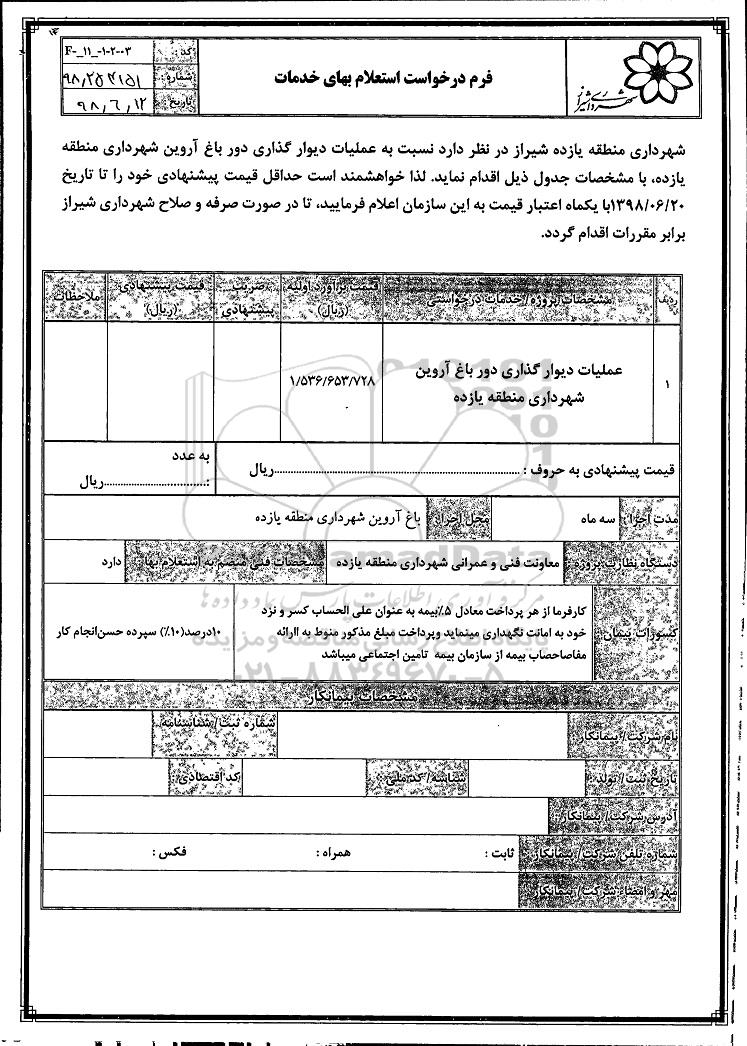 شهرداری شیراز
فرم درخواست استعلام بهای خدمات
کد: F-_11_-1-2-03
شماره: ۹۸/۲۵۳۱۵۱
تاریخ: ۹۸/۶/۱۲
شهرداری منطقه یازده شیراز در نظر دارد نسبت به عملیات دیوار گذاری دور باغ آروین شهرداری منطقه
یازده، با مشخصات جدول ذیل اقدام نماید. لذا خواهشمند است حداقل قیمت پیشنهادی خود را تا تاریخ
۱۳۹۸/۰۶/۲۰با یکماه اعتبار قیمت به این سازمان اعلام فرمایید، تا در صورت صرفه و صلاح شهرداری شیراز
برابر مقررات اقدام گردد.
ردیف
مشخصات پروژه / خدمات درخواستی
قیمت برآورد اولیه (ریال)
ضریب پیشنهادی
قیمت پیشنهادی (ریال)
ملاحظات
۱
عملیات دیوار گذاری دور باغ آروین
شهرداری منطقه یازده
۱/۵۳۶/۶۵۳/۷۲۸
قیمت پیشنهادی به حروف : ........ریال
به عدد
:........ریال
مدت اجرا: سه ماه
محل اجرا: باغ آروین شهرداری منطقه یازده
دستگاه نظارت پروژه : معاونت فنی و عمرانی شهرداری منطقه یازده
مشخصات فنی منضم به استعلام بها : دارد
کسورات پیمان:
کارفرما از هر پرداخت معادل ۵٪بیمه به عنوان علی الحساب کسر و نزد
خود به امانت نگهداری مینماید وپرداخت مبلغ مذکور منوط به اارائه
مفاصاحصاب بیمه از سازمان بیمه تامین اجتماعی میباشد
۱۰درصد(۱۰٪) سپرده حسن‌انجام کار
مشخصات پیمانکار
نام شرکت/ پیمانکار
شماره ثبت/ شناسنامه
تاریخ ثبت / تولد :
شناسه/ کد ملی :
کد اقتصادی:
آدرس شرکت/ پیمانکار
شماره تلفن شرکت/ پیمانکار
ثابت :
همراه :
فکس :
مهر و امضاء شرکت/ پیمانکار
مرکز فرآوری اطلاعات پارس نماد داده ها
۰۲۱-۸۸۳۴۹۶۷۰-۵